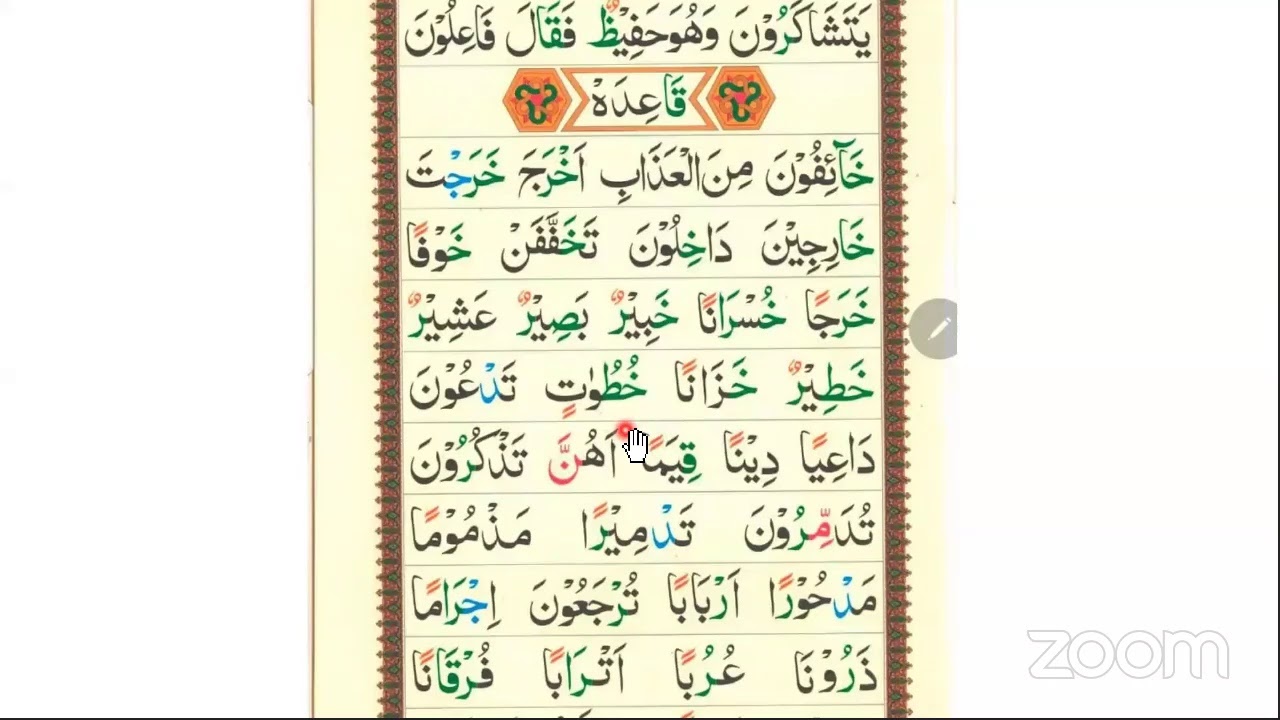 يَتَشَاكَرُوْنَ وَهُوَحَفِيْظٌ فَقَالَ فَاعِلُوْنَ
قَاعِدَهْ
خَآئِفُوْنَ مِنَ الْعَذَابِ اَخْرَجَ خَرَجْتَ
خَارِجِيْنَ دَاخِلُوْنَ تَخَفَّفَنْ خَوْفًا
خَرَجًا خُسْرَانًا خَبِيْرٌ بَصِيْرٌ عَشِيْرٌ
خَطِيْرٌ خَزَانًا خُطُوٰتٍ تَدْعُوْنَ
دَاعِيًا دِيْنًا قِيَمًا اَهُنَّ تَذْكُرُوْنَ
تُدَمِّرُوْنَ تَدْمِيْرًا مَذْمُوْمًا
مَدْحُوْرًا اَرْبَابًا تُرْجَعُوْنَ اِجْرَامًا
ذَرُوْنَا عُرُبًا اَتْرَابًا فُرْقَانًا
zoom